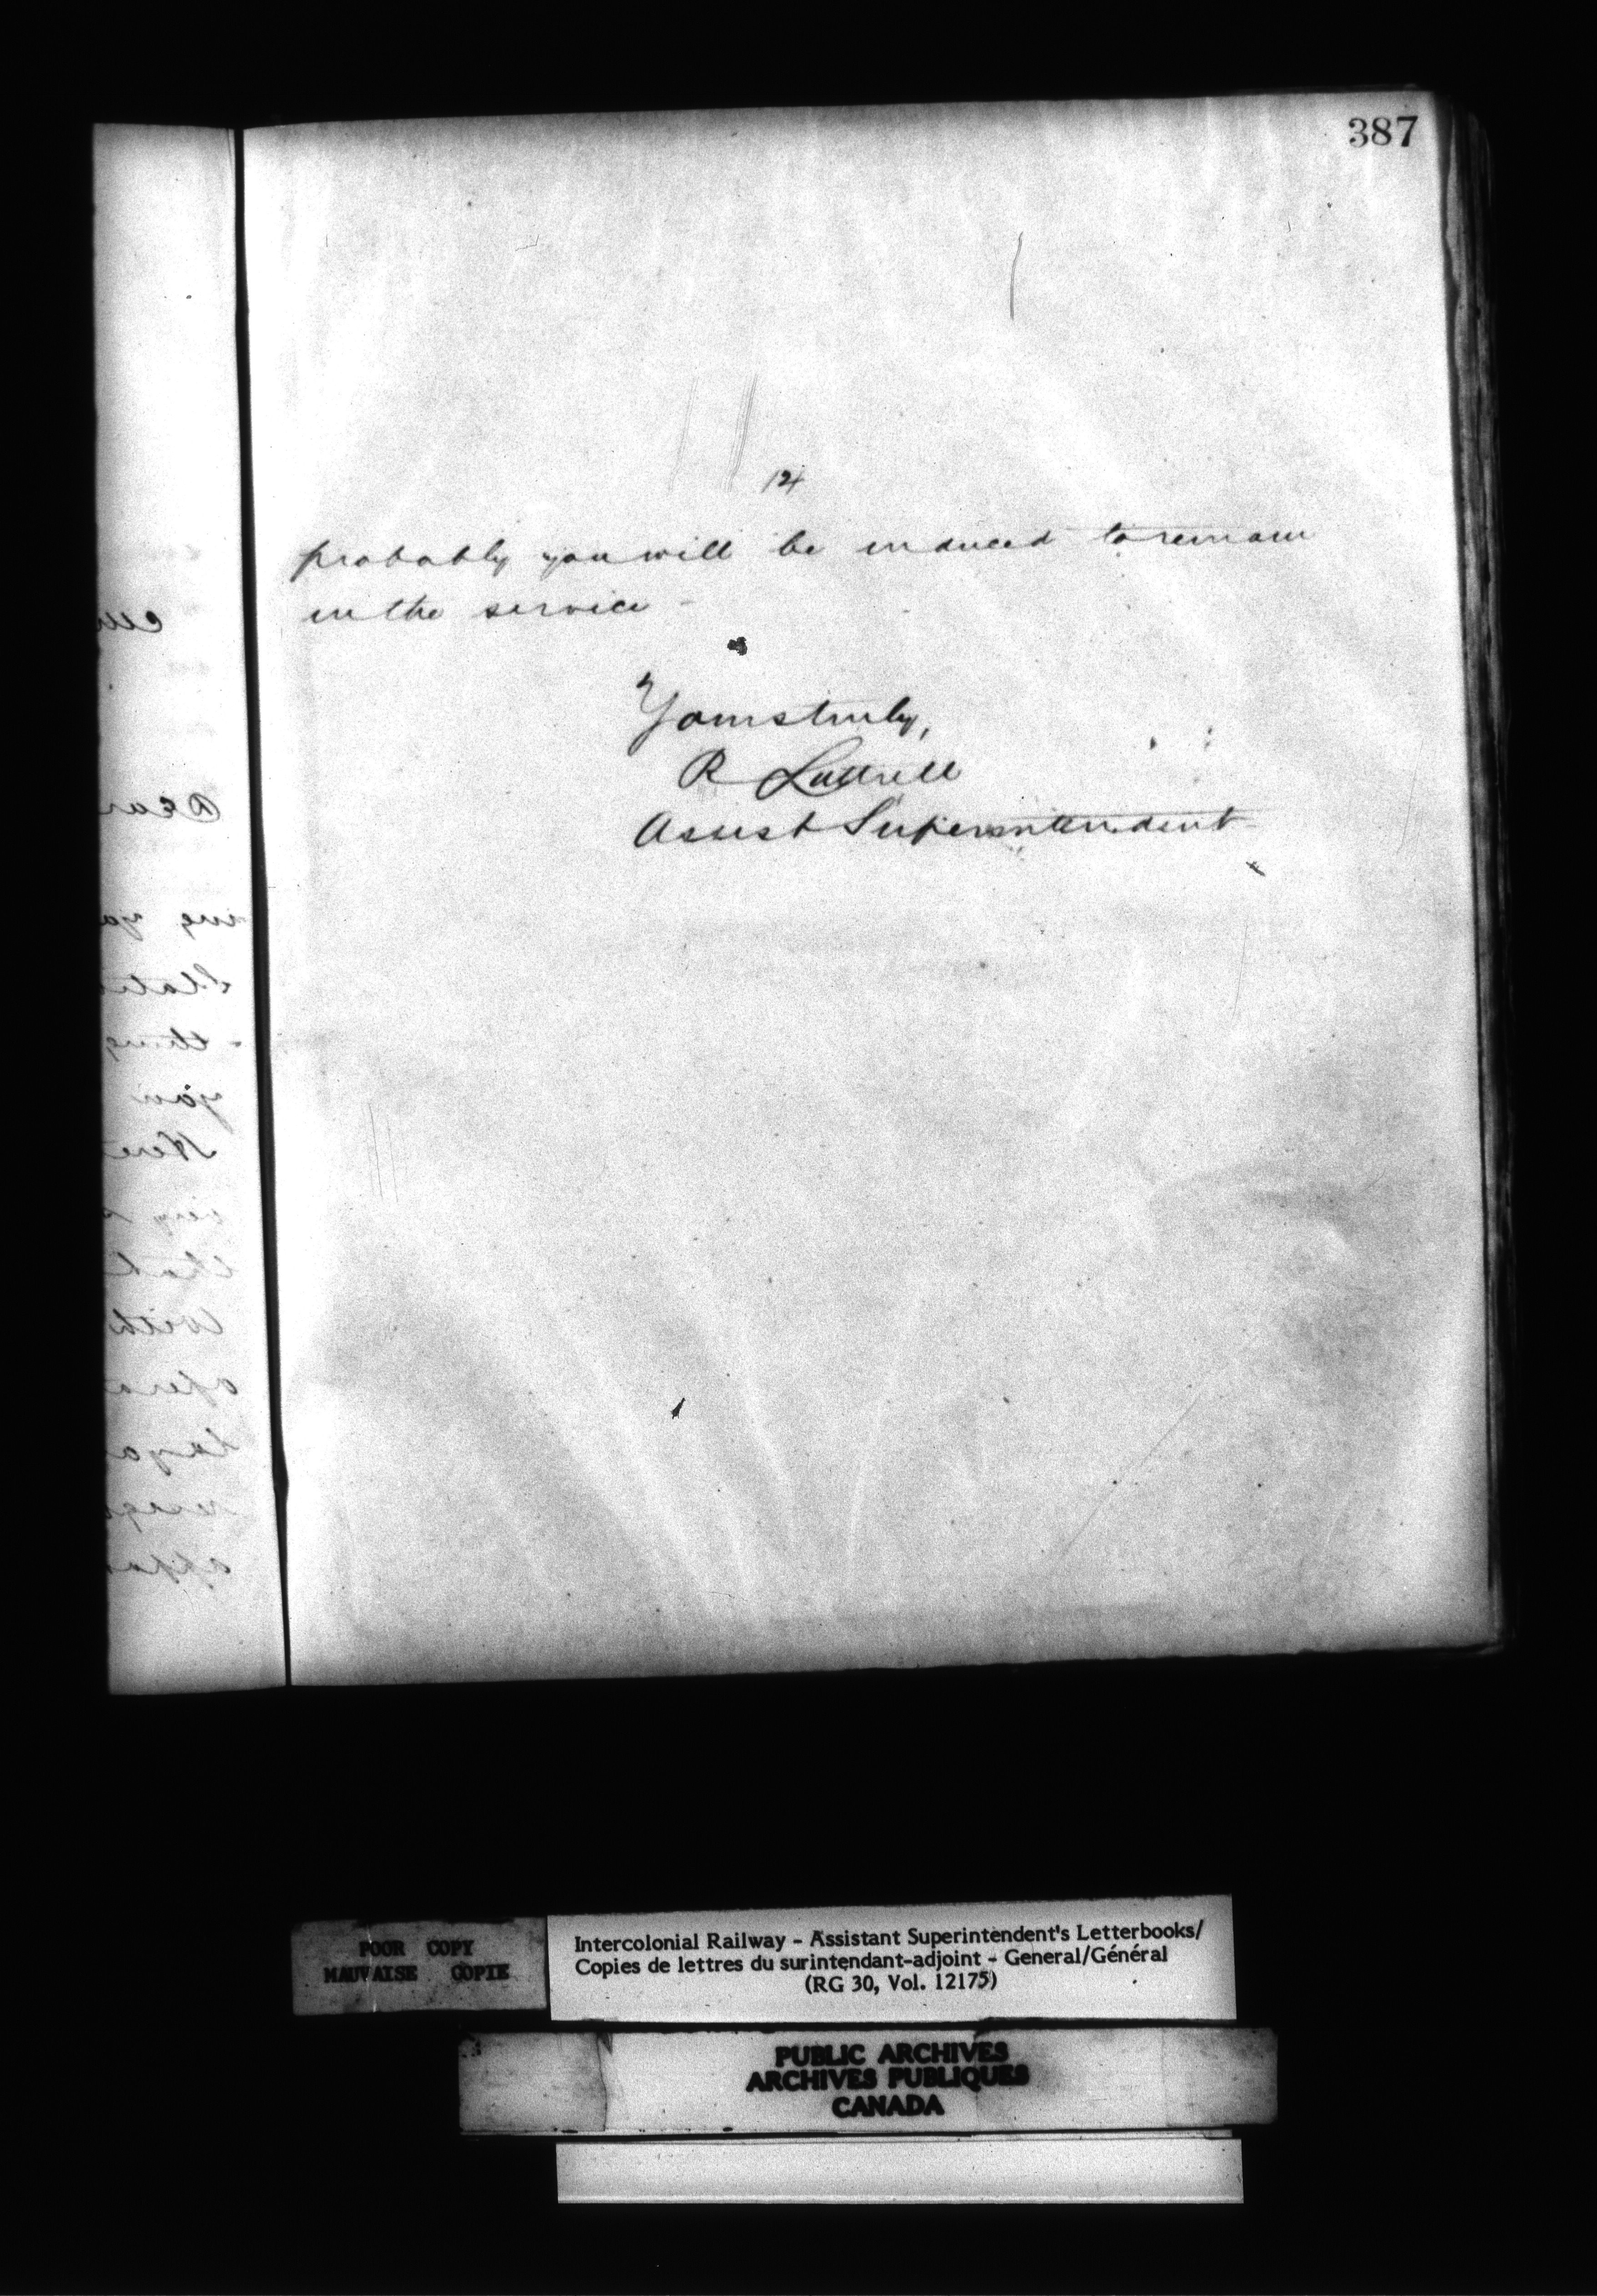 387
probably you will be induced to remain
in the service -
Yours truly,
R Luttrell
Assist Superintendent
POOR COPY
MAUVAISE COPIE
Intercolonial Railway - Assistant Superintendent's Letterbooks/
Copies de lettres du surintendant-adjoint - General/Général
(RG 30, Vol. 12175)
PUBLIC ARCHIVES
ARCHIVES PUBLIQUES
CANADA